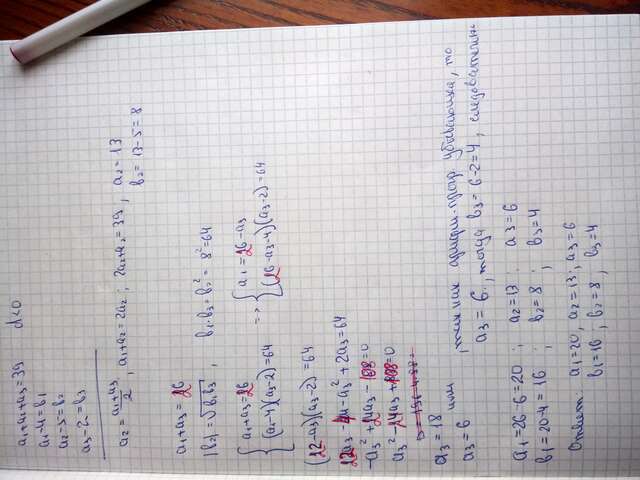 a₁+a₂+a₃=39   d<0
a₁-4=b₁
a₂-5=b₂
a₃-2=b₃
a₂ = (a₁+a₃)/2 , a₁+a₃=2a₂ ; 2a₂+a₂=39 ; a₂=13
b₂=13-5=8
a₁+a₃=26
|b₂|=√(b₁b₃)   b₁·b₃=b₂²=8²=64
{a₁+a₃=26   => {a₁=26-a₃
{(a₁-4)(a₃-2)=64   {(26-a₃-4)(a₃-2)=64
(22-a₃)(a₃-2)=64
22a₃-44-a₃²+2a₃=64
-a₃²+24a₃-108=0
a₃²-24a₃+108=0
a₃=18
a₃=6 или
, так как арифм. прогр. убывающая, то
a₃=6, тогда b₃=6-2=4, следовательно
a₁=26-6=20 ; a₂=13 ; a₃=6
b₁=20-4=16 ; b₂=8 ; b₃=4
Ответ: a₁=20; a₂=13; a₃=6
b₁=16; b₂=8; b₃=4